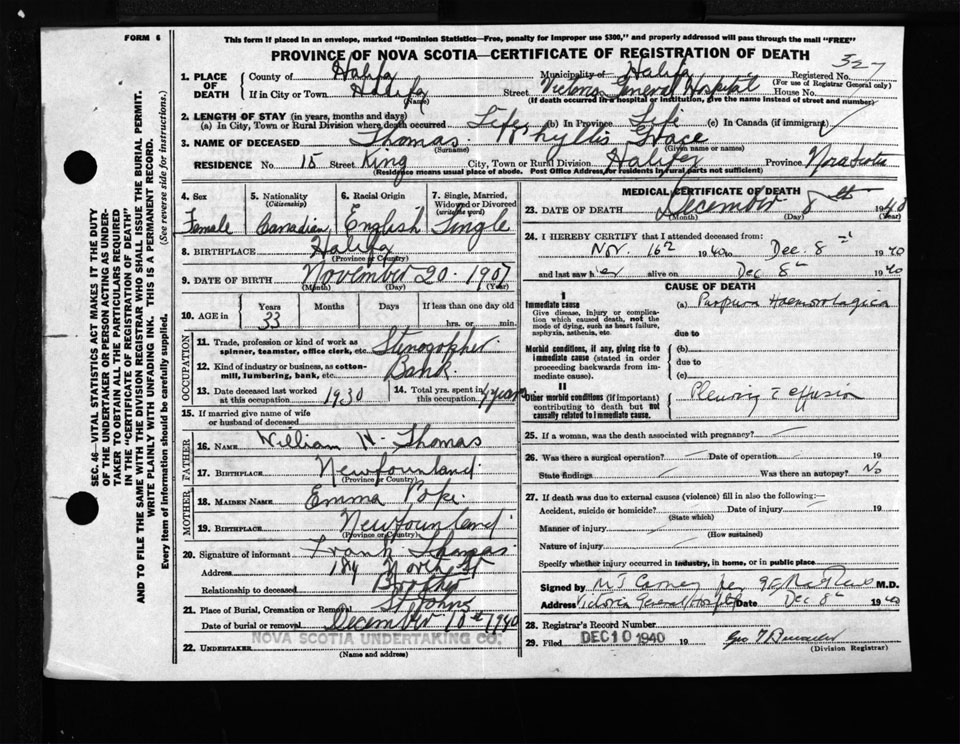 FORM 6
This form if placed in an envelope, marked "Dominion Statistics—Free, penalty for improper use $300," and properly addressed will pass through the mail "FREE"
PROVINCE OF NOVA SCOTIA—CERTIFICATE OF REGISTRATION OF DEATH
SEC. 46—VITAL STATISTICS ACT MAKES IT THE DUTY
OF THE UNDERTAKER OR PERSON ACTING AS UNDER-
TAKER TO OBTAIN ALL THE PARTICULARS REQUIRED
IN THE "CERTIFICATE OF REGISTRATION OF DEATH"
AND TO FILE THE SAME WITH THE DIVISION REGISTRAR WHO SHALL ISSUE THE BURIAL PERMIT.
WRITE PLAINLY WITH UNFADING INK. THIS IS A PERMANENT RECORD.
Every item of information should be carefully supplied. (See reverse side for instructions.)
1. PLACE OF DEATH County of Halifax Municipality of Halifax Registered No. 327
(For use of Registrar General only)
If in City or Town Halifax (Name) Street Victoria General Hospital House No.
(If death occurred in a hospital or institution, give the name instead of street and number)
2. LENGTH OF STAY (in years, months and days)
(a) In City, Town or Rural Division where death occurred Life (b) In Province Life (c) In Canada (if immigrant)
3. NAME OF DECEASED Thomas Phyllis Grace
(Surname) (Given name or names)
RESIDENCE No. 15 Street King City, Town or Rural Division Halifax Province Nova Scotia
(Residence means usual place of abode. Post Office Address for residents in rural parts not sufficient)
4. Sex Female
5. Nationality (Citizenship) Canadian
6. Racial Origin English
7. Single, Married, Widowed or Divorced (write the word) Single
8. BIRTHPLACE Halifax
(Province or Country)
9. DATE OF BIRTH November 20 1907
(Month) (Day) (Year)
10. AGE in Years 33 Months Days If less than one day old hrs. or min.
OCCUPATION
11. Trade, profession or kind of work as spinner, teamster, office clerk, etc. Stenogopher
12. Kind of industry or business, as cotton-mill, lumbering, bank, etc. Bank
13. Date deceased last worked at this occupation 1930
14. Total yrs. spent in this occupation 4 years
15. If married give name of wife or husband of deceased
FATHER
16. NAME William H. Thomas
17. BIRTHPLACE Newfounland
(Province or Country)
MOTHER
18. MAIDEN NAME Emma Poke
19. BIRTHPLACE Newfounland
(Province or Country)
20. Signature of informant Frank Thomas
Address 184 North St
Relationship to deceased Brother
21. Place of Burial, Cremation or Removal St Johns
Date of burial or removal December 10th 1940
NOVA SCOTIA UNDERTAKING CO.
22. UNDERTAKER
(Name and address)
MEDICAL CERTIFICATE OF DEATH
23. DATE OF DEATH December 8th 1940
(Month) (Day) (Year)
24. I HEREBY CERTIFY that I attended deceased from:
Nov. 16th 1940 to Dec. 8th 1940
and last saw her alive on Dec 8th 1940
CAUSE OF DEATH
I
Immediate cause
Give disease, injury or complication which caused death, not the mode of dying, such as heart failure, asphyxia, asthenia, etc.
(a) Purpura Haemorrhagica
due to
Morbid conditions, if any, giving rise to immediate cause (stated in order proceeding backwards from immediate cause).
(b)
due to
(c)
II
Other morbid conditions (if important) contributing to death but not causally related to immediate cause.
Pleurisy c effusion
25. If a woman, was the death associated with pregnancy?
26. Was there a surgical operation? Date of operation 19
State findings Was there an autopsy? No
27. If death was due to external causes (violence) fill in also the following:—
Accident, suicide or homicide? Date of injury 19
(State which)
Manner of injury
(How sustained)
Nature of injury
Specify whether injury occurred in industry, in home, or in public place
Signed by M.D.
Address Victoria General Hospital Date Dec 8th 1940
28. Registrar's Record Number
29. Filed DEC 10 1940 19
(Division Registrar)